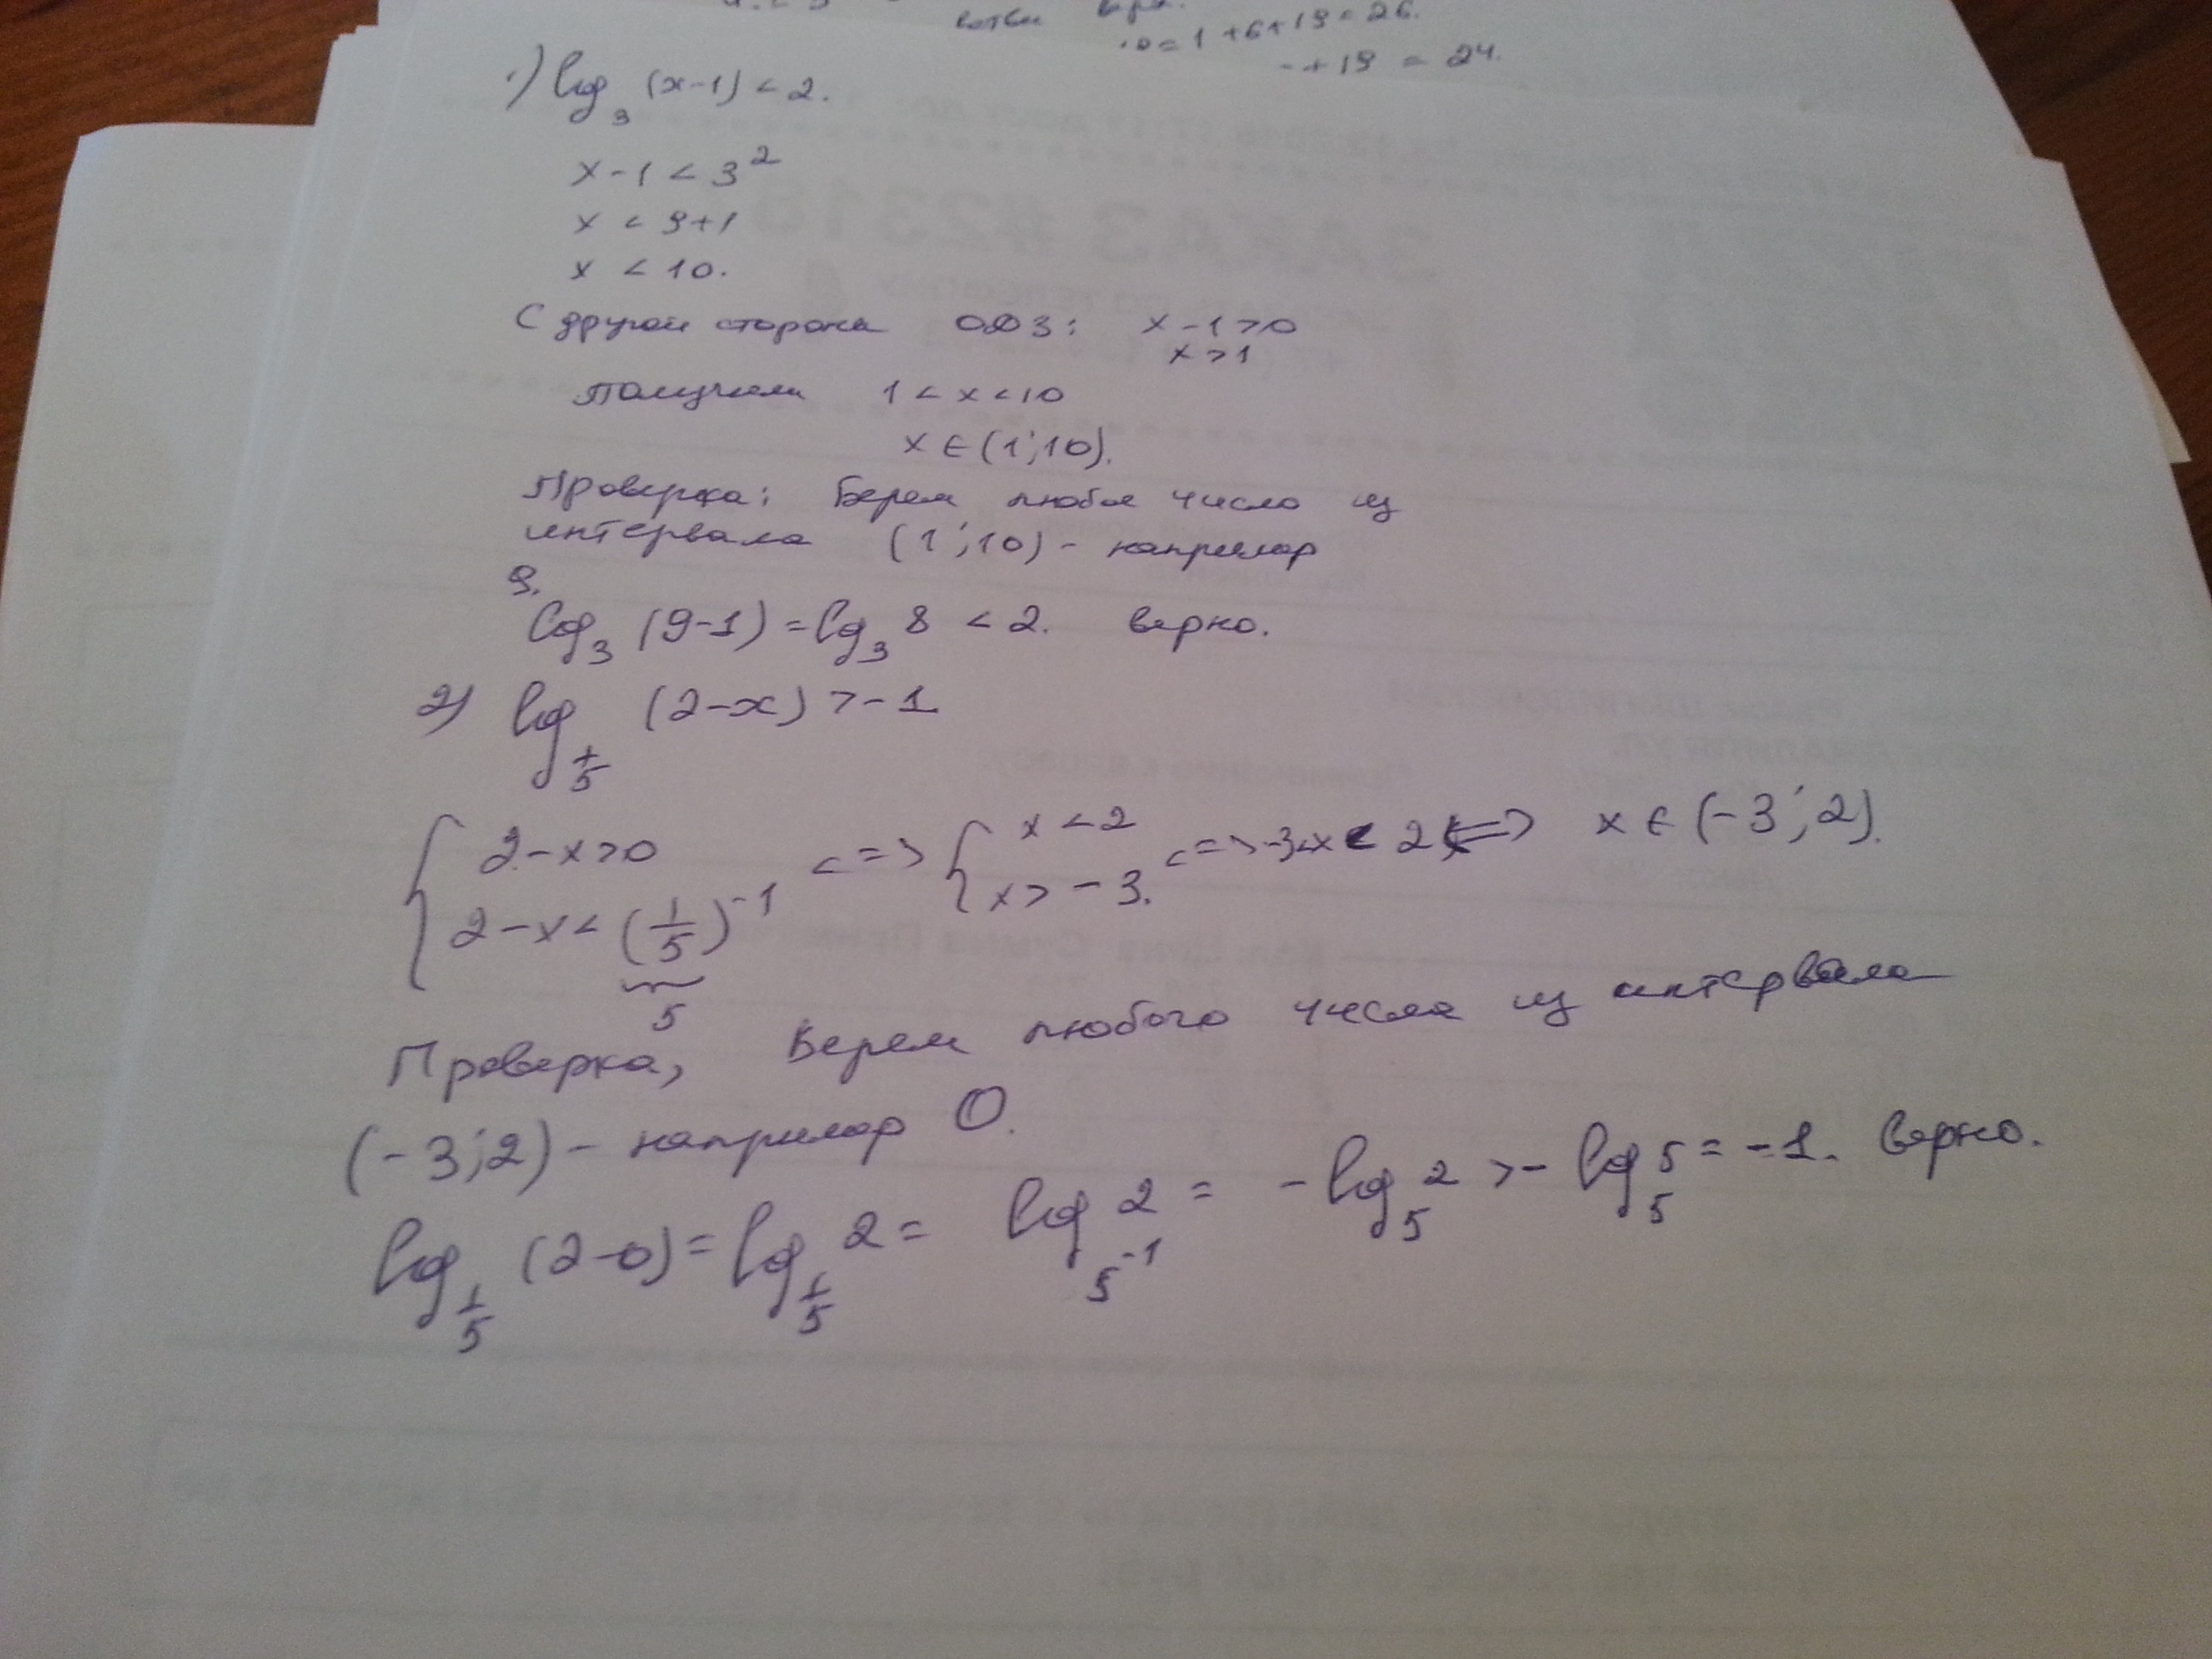 1+6+19=26.
+19 = 24.
1) log₃ (x-1) < 2.
x-1 < 3²
x < 9+1
x < 10.
С другой стороны ОДЗ: x-1>0
x>1
Получили 1 < x < 10
x ∈ (1;10).
Проверка: Берем любое число из
интервала (1;10) - например
9.
log₃ (9-1) = log₃ 8 < 2. верно.
2) log_{1/5} (2-x) > -1
{ 2-x>0 <=> { x < 2 <=> -3<x<2 <=> x ∈ (-3;2).
2-x < (1/5)⁻¹ x > -3.
5
Проверка, Берем любого числа из интервала
(-3;2) - например 0.
log_{1/5} (2-0) = log_{1/5} 2 = log_{5⁻¹} 2 = -log₅ 2 > -log₅ 5 = -1. верно.